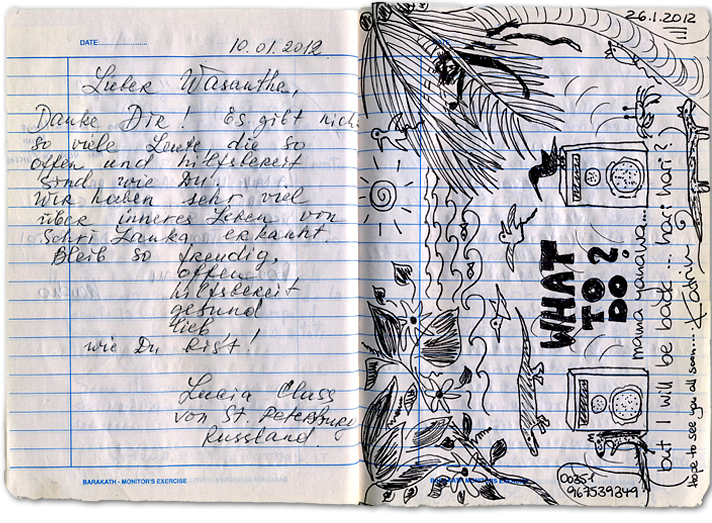 DATE:
10.01.2012
Lieber Wasantha,
Danke Dir! Es gibt nicht
so viele Leute die so
offen und hilfsbereit
sind wie Du.
Wir haben sehr viel
über inneres Leben von
Schri Lanka erkannt.
Bleib so freudig,
offen
hilfsbereit
gesund
lieb
wie Du bist!
Lucia Class
von St. Petersburg
Russland
BARAKATH - MONITOR'S EXERCISE
26.1.2012
WHAT
TO
DO?
mama yanawa...
(but I will be back... hari hari?)
hope to see you all soon... Katrin
00351
967539349